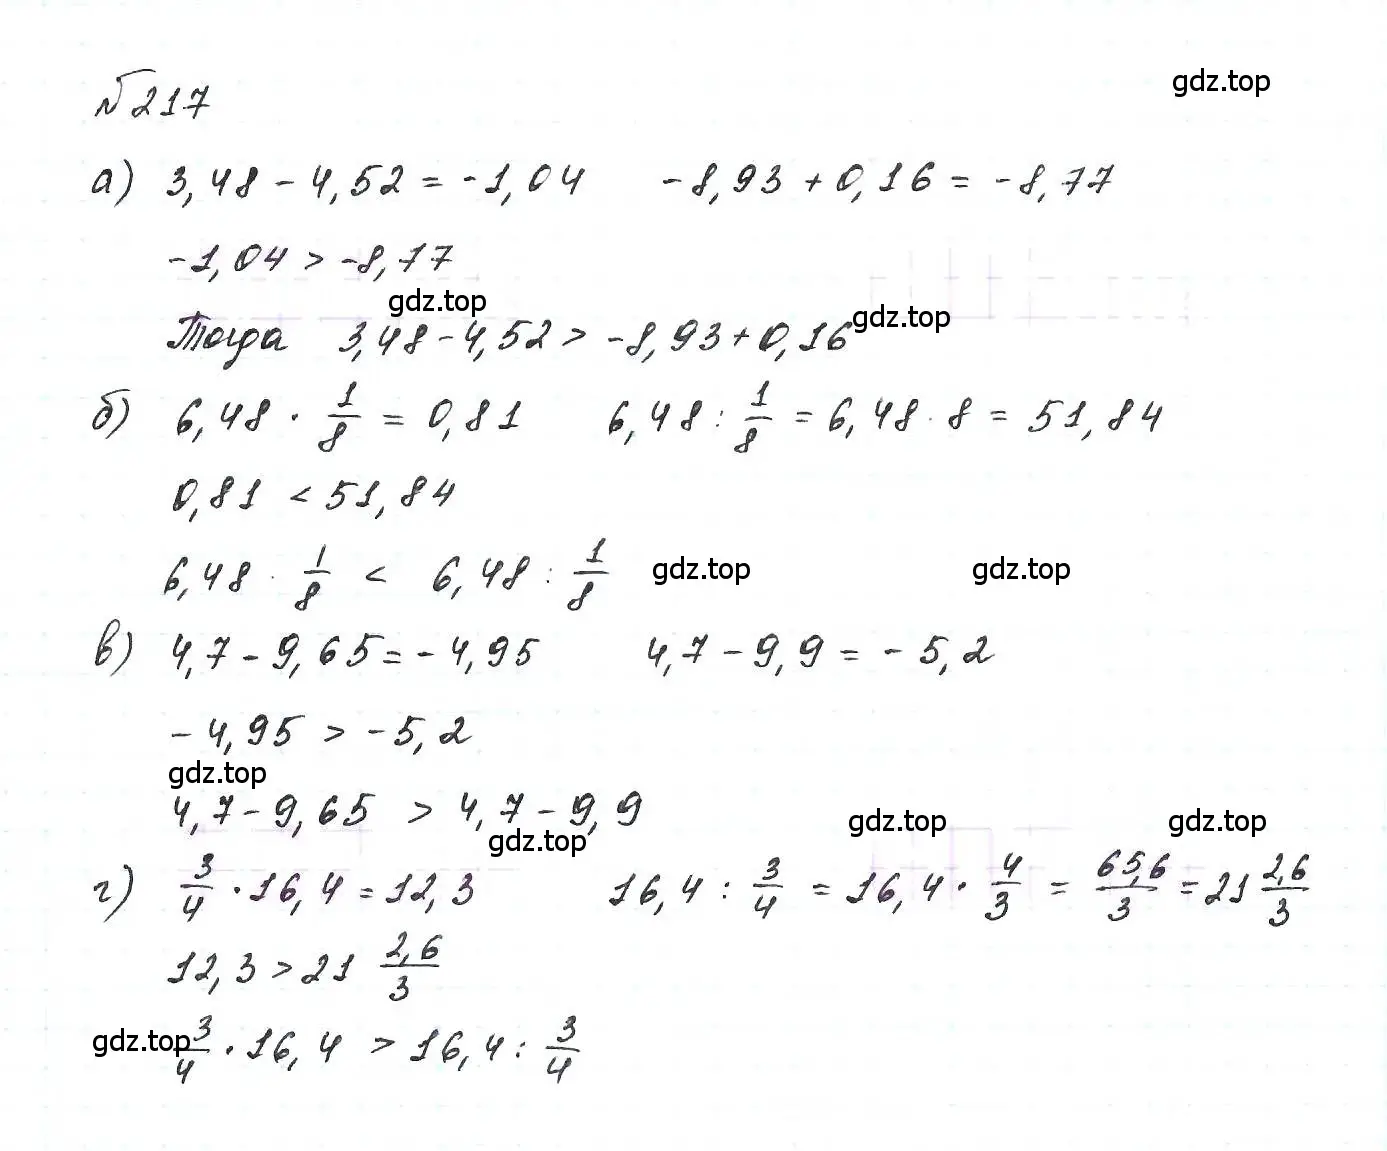 №217
gdz.top
а) 3,48 - 4,52 = -1,04    -8,93 + 0,16 = -8,77
-1,04 > -8,77
gdz.top
gdz.top
Тогда 3,48 - 4,52 > -8,93 + 0,16
б) 6,48 · 1/8 = 0,81    6,48 : 1/8 = 6,48 · 8 = 51,84
0,81 < 51,84
6,48 · 1/8 < 6,48 : 1/8
gdz.top gdz.top
в) 4,7 - 9,65 = -4,95    4,7 - 9,9 = -5,2
-4,95 > -5,2
gdz.top
4,7 - 9,65 > 4,7 - 9,9
gdz.top gdz.top gdz.top
г) 3/4 · 16,4 = 12,3    16,4 : 3/4 = 16,4 · 4/3 = 65,6/3 = 21 2,6/3
12,3 > 21 2,6/3
gdz.top
3/4 · 16,4 > 16,4 : 3/4